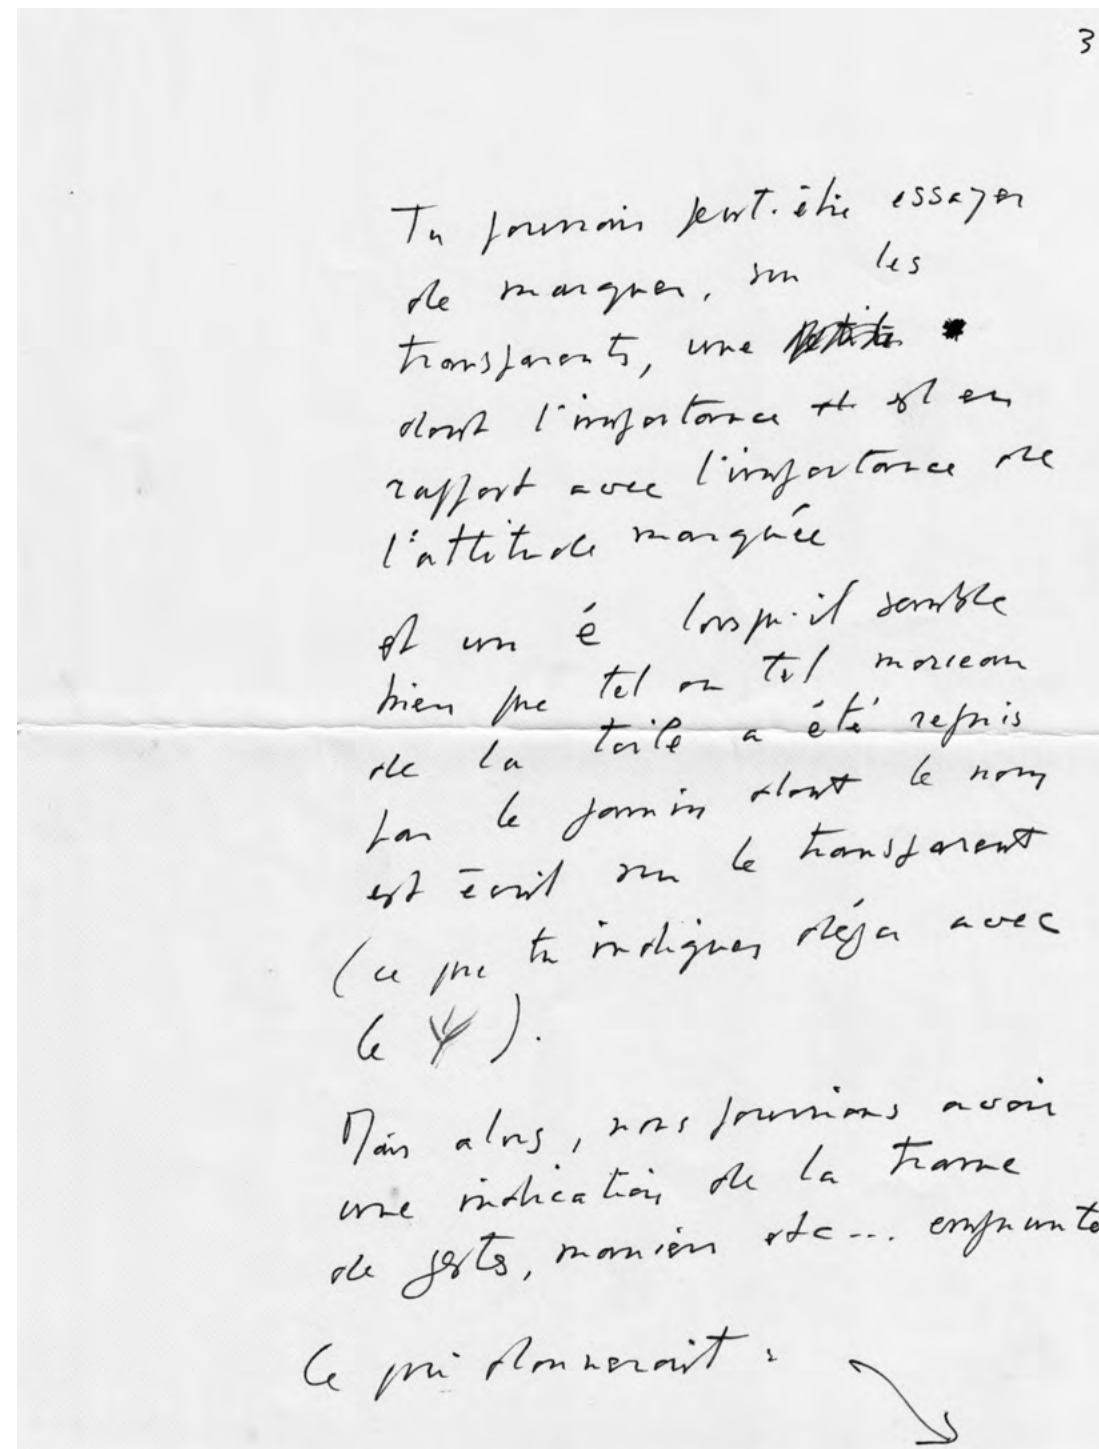 3
Tu pourrais peut-être essayer
de marquer, sur les
transparents, une petite
dont l'importance est en
rapport avec l'importance de
l'attitude marquée
et un é lorsqu'il semble
bien que tel ou tel morceau
de la toile a été repris
par le gamin dont le nom
est écrit sur le transparent
(ce que tu indiques déjà avec
le ).
Mais alors, nous pourrions avoir
une indication de la trame
de gestes, manières etc... emprunte
Ce qui donnerait :